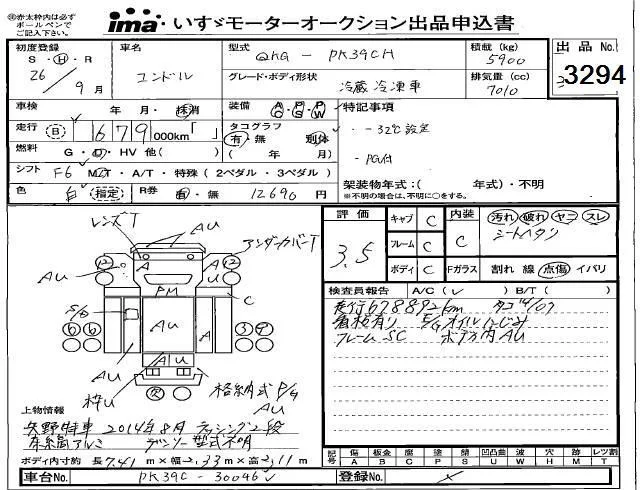 ※赤太枠内は必ず
ボールペンで
ご記入下さい。
ima・いすゞモーターオークション出品申込書
初度登録 車名 型式 QKG - PK39CH 積載(kg) 5900 出品No. 3294
S・H・R 26年9月 コンドル グレード・ボディ形状 冷蔵冷凍車 排気量(cc) 7010
車検 年・月・抹消 装備 AC・PS・PW 特記事項
走行 B 679,000km「 」 タコグラフ 有・無 別体 - -32℃設定
燃料 G・D・HV 他( ) ( 年 月) - PG付
シフト F6 MT・A/T・特殊(2ペダル・3ペダル) 架装物年式:( 年式)・不明
色 白 指定 R券 有・無 12690円 ※不明の場合は、不明に○をする。
評価 3.5
キャブ C 内装 C 汚れ・破れ・ヤニ・スレ
シートヘタリ
フレーム C
ボディ C Fガラス 割れ 線 点傷 イバリ
検査員報告 A/C(レ) B/T( )
走行678892km
看板有り E/Gオイルにじみ
フレームSC ボデー内AU
レンズT
AU
アンダーカバーT
12 A A 12
AU U
PM
C
S/D
6 6 AU A 3 9
AU
AU
枠U
欠
格納式P/G
AU
上物情報
矢野特車 2014年8月 ラッシング2段
床縞アルミ デンソー型式不明
ボディ内寸約 長7.41m×幅2.33m×高2.11m
記号 傷A 板金B 腐C 塗P 錆S 凹凸曲U 波W 穴H 跡M レツ割T
車台No. PK39C - 30046 登録No.